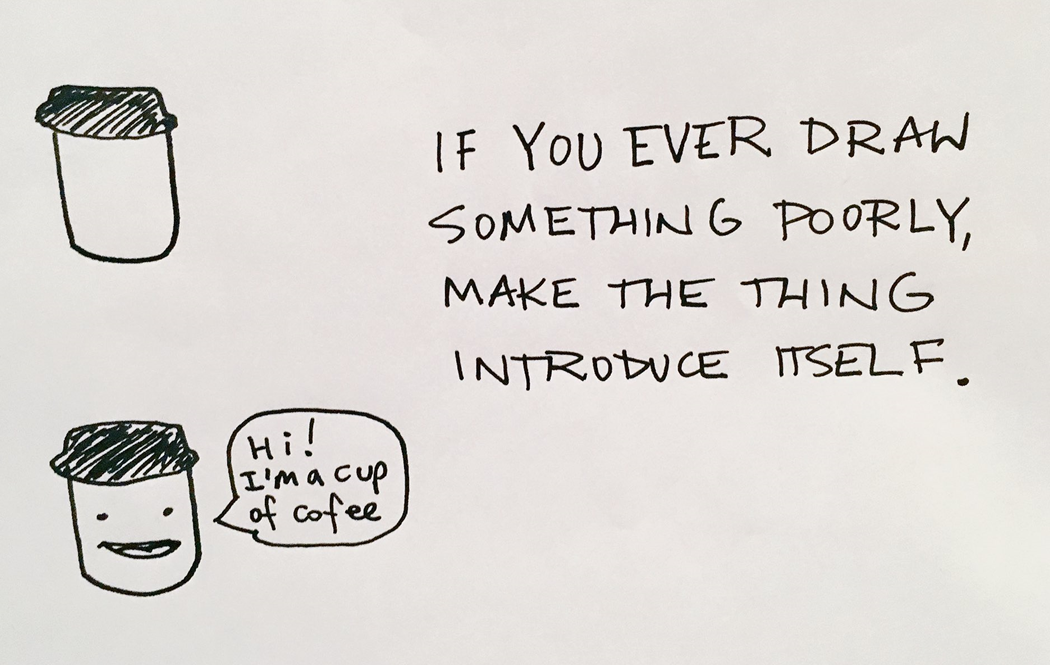 IF YOU EVER DRAW
SOMETHING POORLY,
MAKE THE THING
INTRODUCE ITSELF.
Hi!
I'm a cup
of cofee